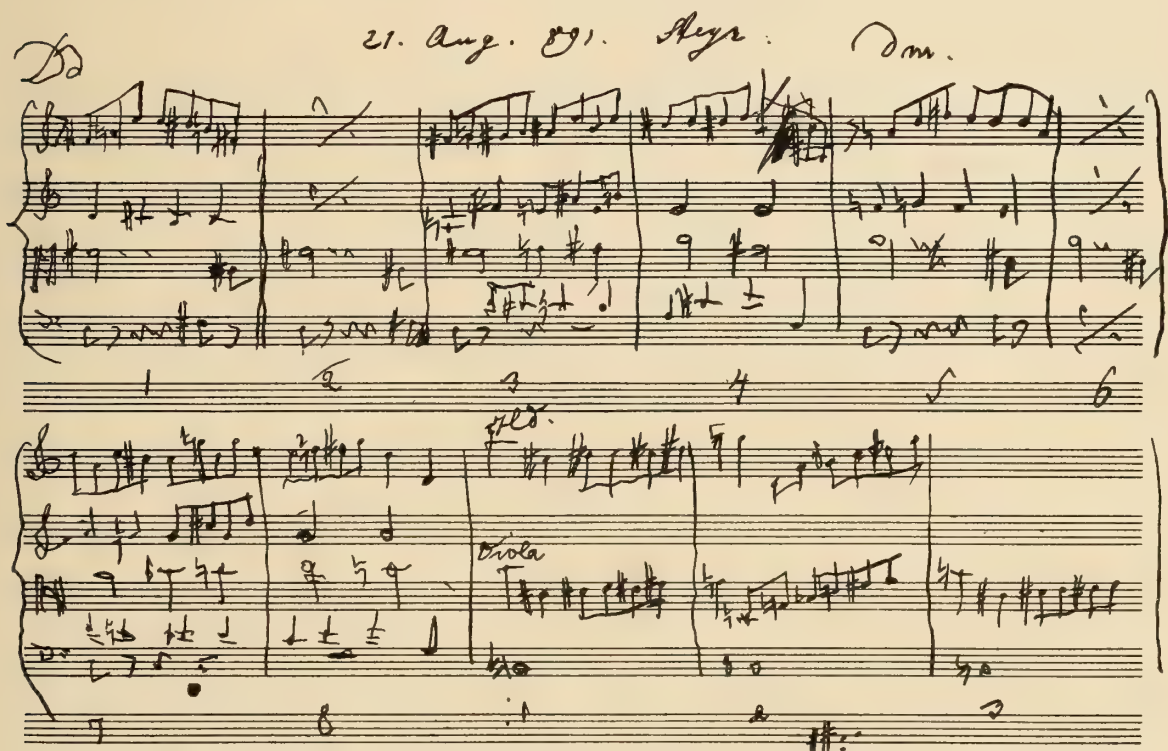 21. Aug. 891. Steyr. Dm.
1 2 3 4 5 6
Viola
7 8 1 2 3